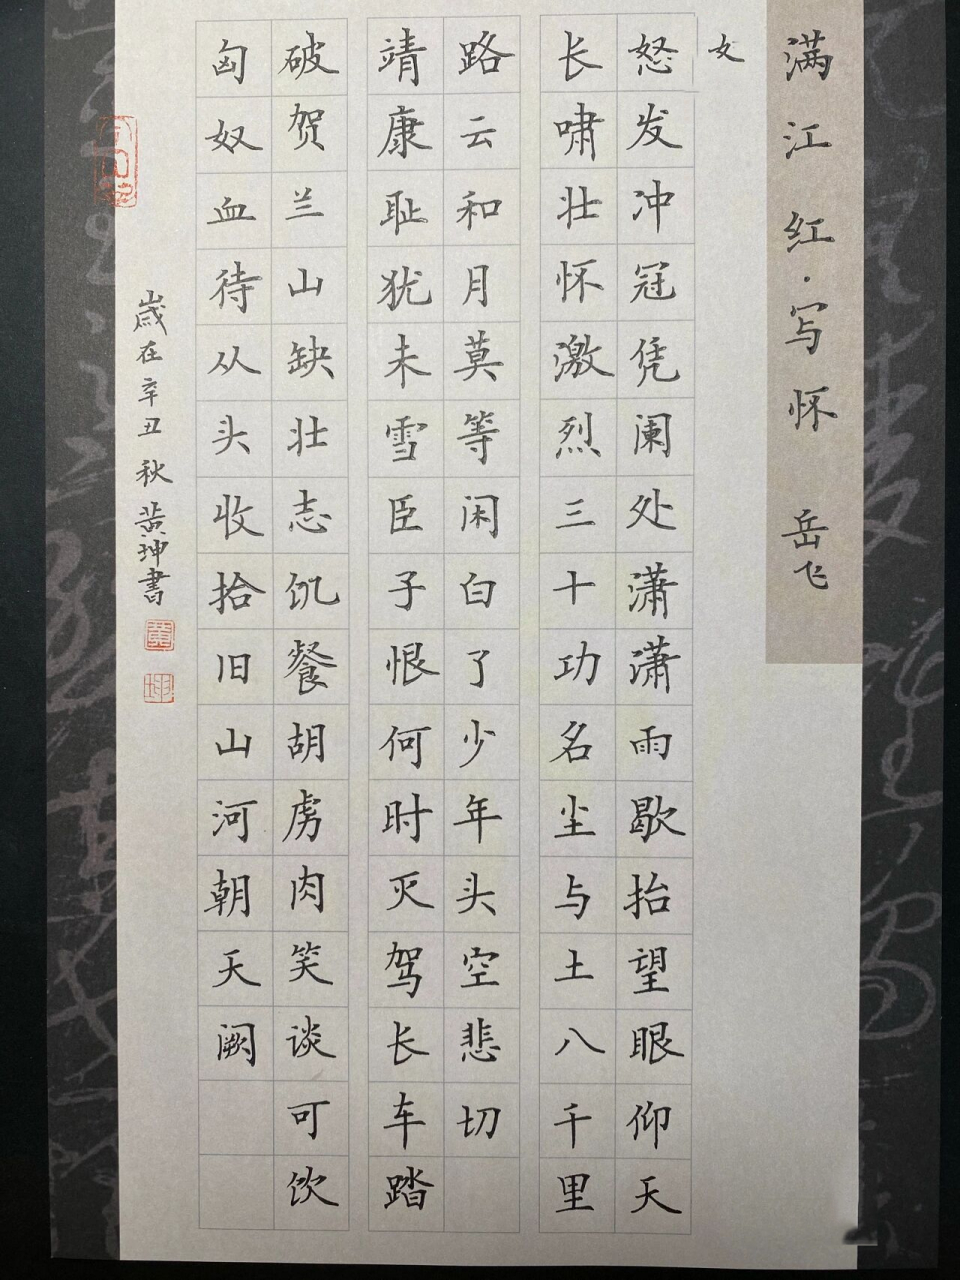 满江红·写怀 岳飞
女
怒发冲冠凭阑处潇潇雨歇抬望眼仰天
长啸壮怀激烈三十功名尘与土八千里
路云和月莫等闲白了少年头空悲切
靖康耻犹未雪臣子恨何时灭驾长车踏
破贺兰山缺壮志饥餐胡虏肉笑谈可饮
匈奴血待从头收拾旧山河朝天阙
歲在辛丑秋黄坤書